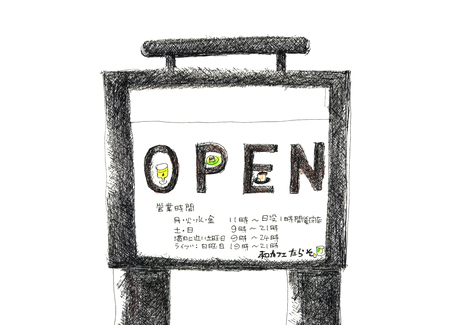 OPEN
営業時間
月・火・水・金 11時〜日没1時間後
土・日 9時〜21時
満月に近い土曜日 9時〜24時
ライブ 日曜日 19時〜21時
和カフェたらそ